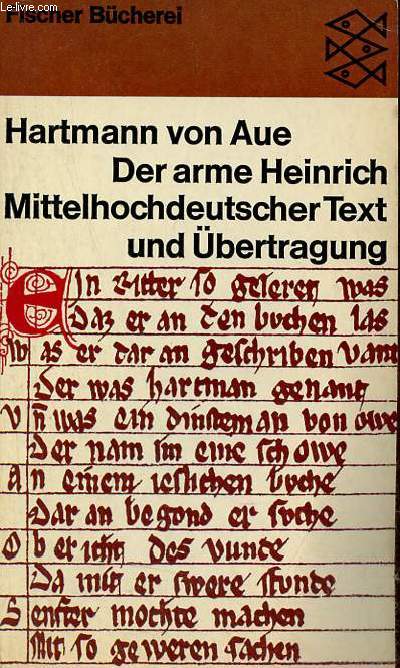 Le-livre.com
Fischer Bücherei
Hartmann von Aue
Der arme Heinrich
Mittelhochdeutscher Text
und Übertragung
Ein Ritter so geleret was
Daz er an den buchen las
Was er dar an geschriben vant
Der was hartman genant
Vn̄ was ein dinsteman von owe
Der nam im eine schowe
An einem islichen buche
Dar an begond er suche
Ob er icht des vunde
Da mit er swere stunde
Senfter mochte machen
Mit so geweren sachen